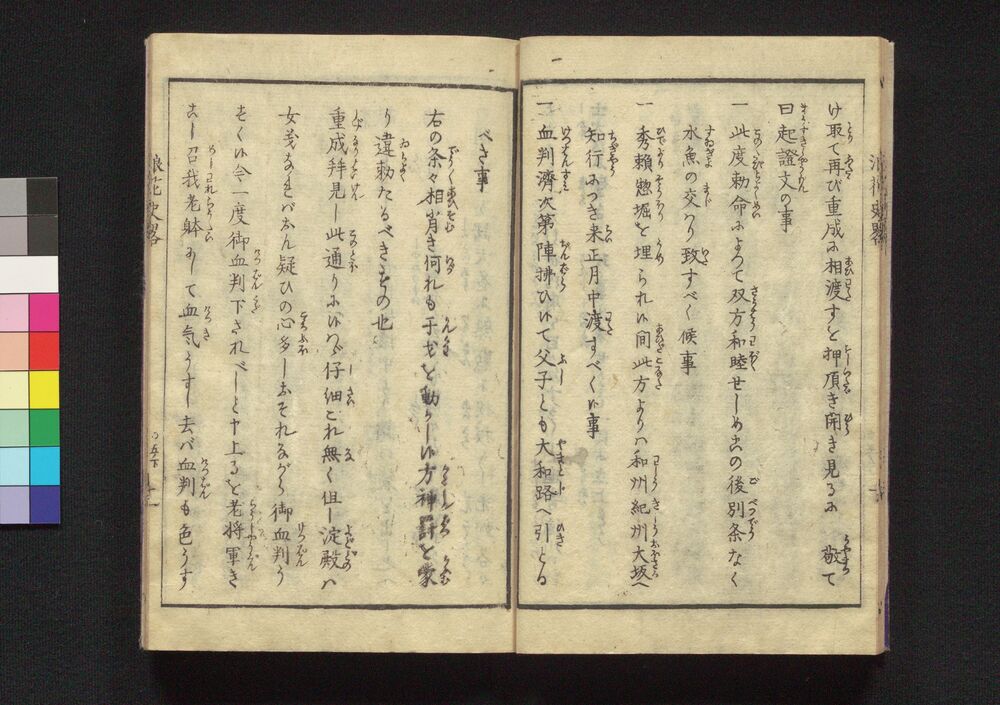 け取て再び重成に相渡すを押頂き開き見るに 敬て
曰起證文の事
一 此度勅命によつて双方和睦せしめ此の後別条なく
水魚の交り致すべく候事
一 秀頼惣堀を埋られ候間此方よりハ和州紀州大坂へ
知行につき来正月中渡すべく候事
一 血判濟次第陣拂ひ候て父子とも大和路へ引とる
べき事
右の条々相背き何れも干戈を動かし候方神罰を蒙
り違勅たるべきもの也
重成拝見し此通りに候ハヾ仔細これ無く但し淀殿ハ
女義なれバ疑ひの心多しおそれながら御血判う
すく候今一度御血判下されべしと申上るを老将軍き
こし召我老躰にして血気うすし去バ血判も色うす
浪花史畧